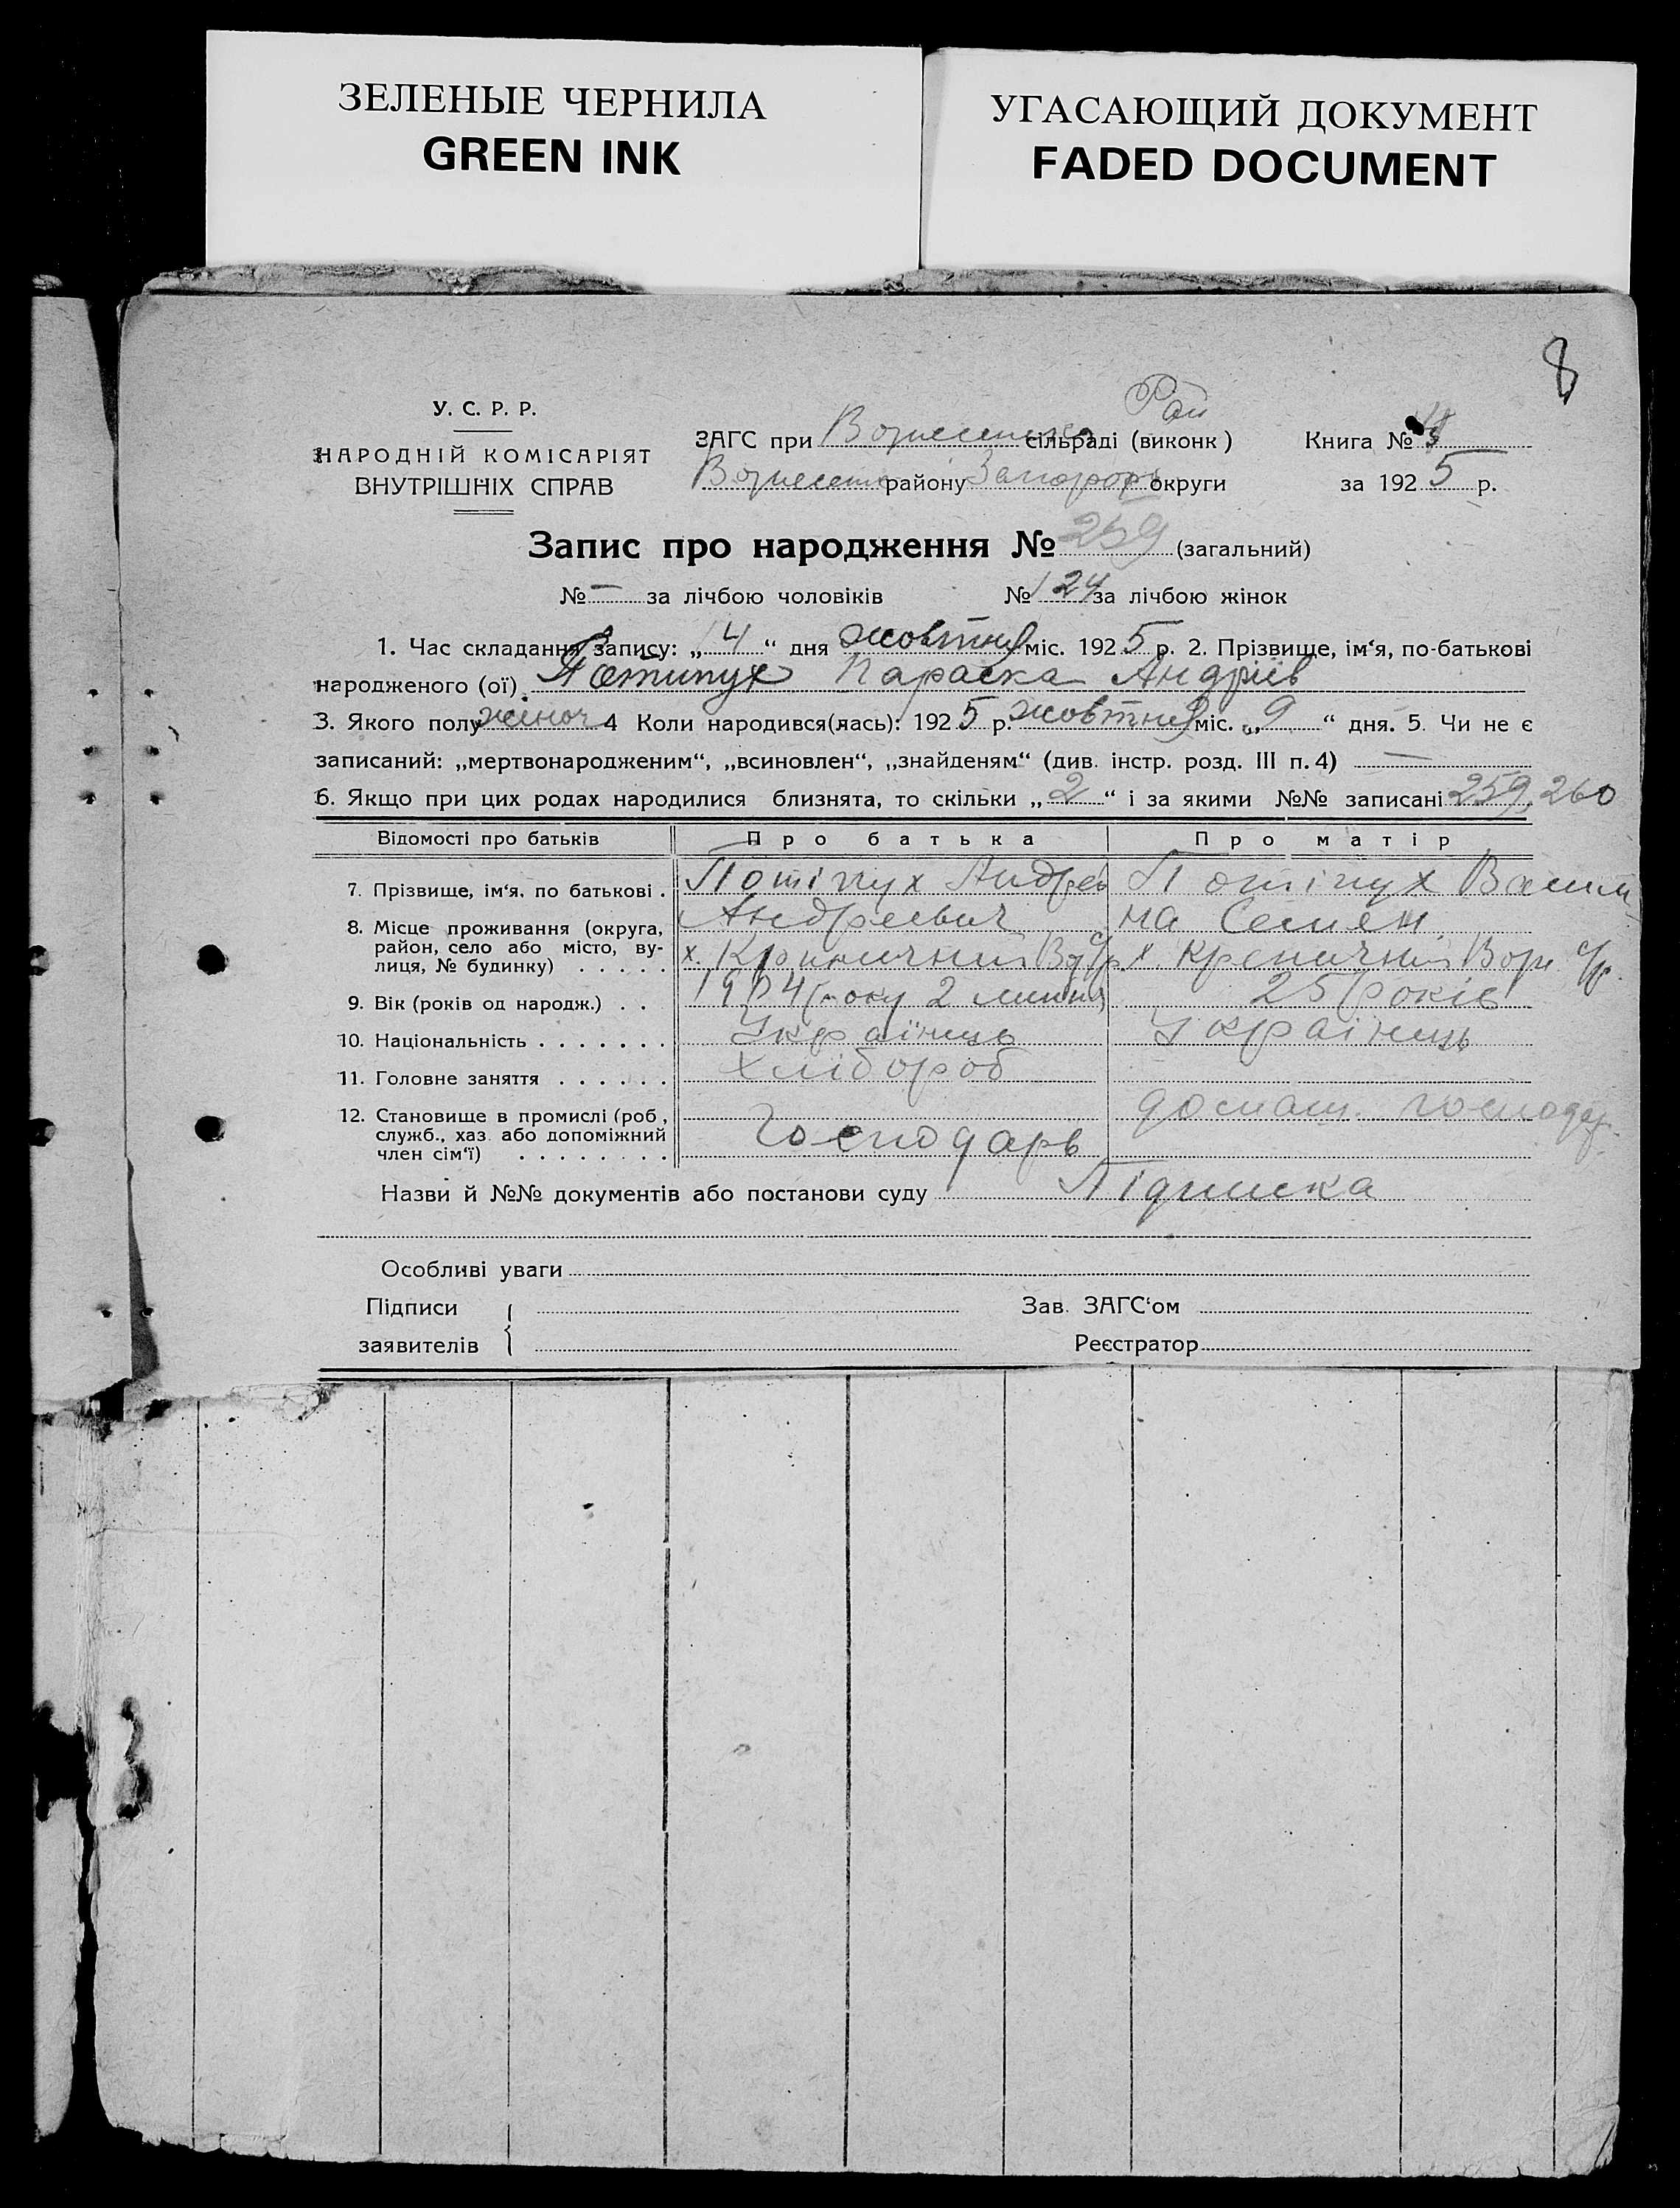 ЗЕЛЕНЫЕ ЧЕРНИЛА
GREEN INK
УГАСАЮЩИЙ ДОКУМЕНТ
FADED DOCUMENT
8
У. С. Р. Р.
НАРОДНІЙ КОМІСАРІЯТ
ВНУТРІШНІХ СПРАВ
Рай
ЗАГС при сільраді (виконк) Книга №
району округи за 1925 р.
Запис про народження № 259 (загальний)
№ — за лічбою чоловіків № 124 за лічбою жінок
1. Час складання запису: „14“ дня жовтня міс. 1925 р. 2. Прізвище, ім‘я, по-батькові
народженого (ої) Потипух Параска Андріїв
3. Якого полу жіноч 4 Коли народився(лась): 1925 р. жовтня міс. „9“ дня. 5. Чи не є
записаний: „мертвонародженим“, „всиновлен“, „знайденям“ (див. інстр. розд. III п. 4) —
6. Якщо при цих родах народилися близнята, то скільки „2“ і за якими №№ записані 259, 260
Відомості про батьків Про батька Про матір
7. Прізвище, ім‘я, по батькові . Потіпух Андрей Потіпух
Андреевич на Семен.
8. Місце проживання (округа, район, село або місто, вулиця, № будинку) . . . . . х. Криничний х. Креничний Возн с/р.
9. Вік (років од народж.) . . 1904 року 2 липня 25 років
10. Національність . . . . . . . Українець Українець
11. Головне заняття . . . . . . Хлібороб
12. Становище в промислі (роб, служб., хаз. або допоміжний член сім‘ї) . . . . . . . . Господарь домаш. господар.
Назви й №№ документів або постанови суду Підписка
Особливі уваги
Підписи Зав. ЗАГС‘ом
заявителів Реєстратор